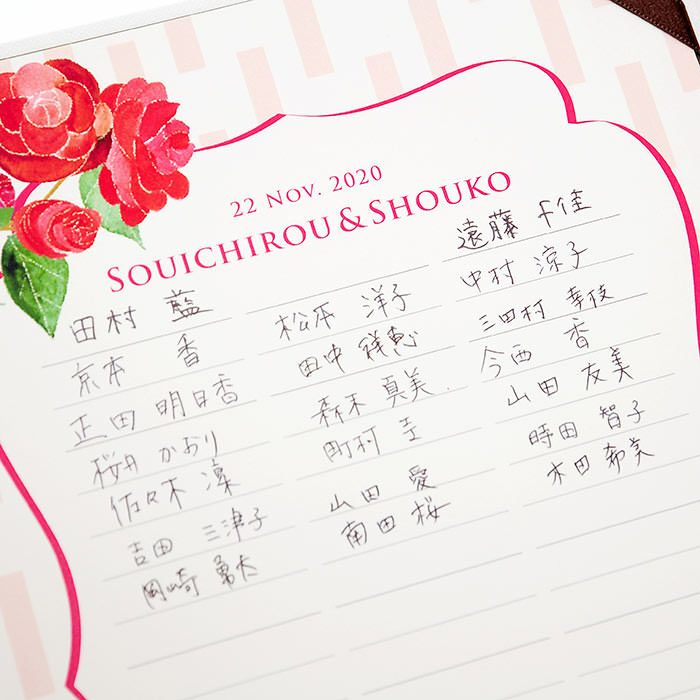 22 Nov. 2020
Souichirou & Shouko
田村 藍
京本 香
正田 明日香
桜井 かおり
佐々木 凜
吉田 三津子
岡崎 勇太
松本 洋子
田中 祥恵
森木 真美
町村 圭
山田 愛
南田 桜
遠藤 千佳
中村 涼子
三田村 幸枝
今西 香
山田 友美
時田 智子
木田 希美